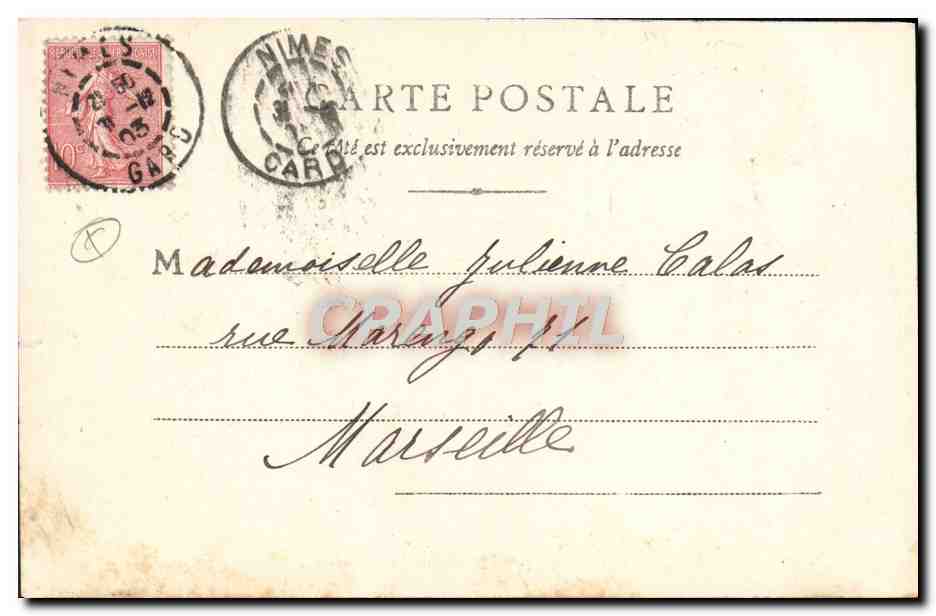 REPUBLIQUE FRANÇAISE
10c
NIMES
03
GARD
NIMES
GARD
CARTE POSTALE
Ce côté est exclusivement réservé à l'adresse
Mademoiselle Julienne Calas
CRAPHIL
rue Marengo 71
Marseille